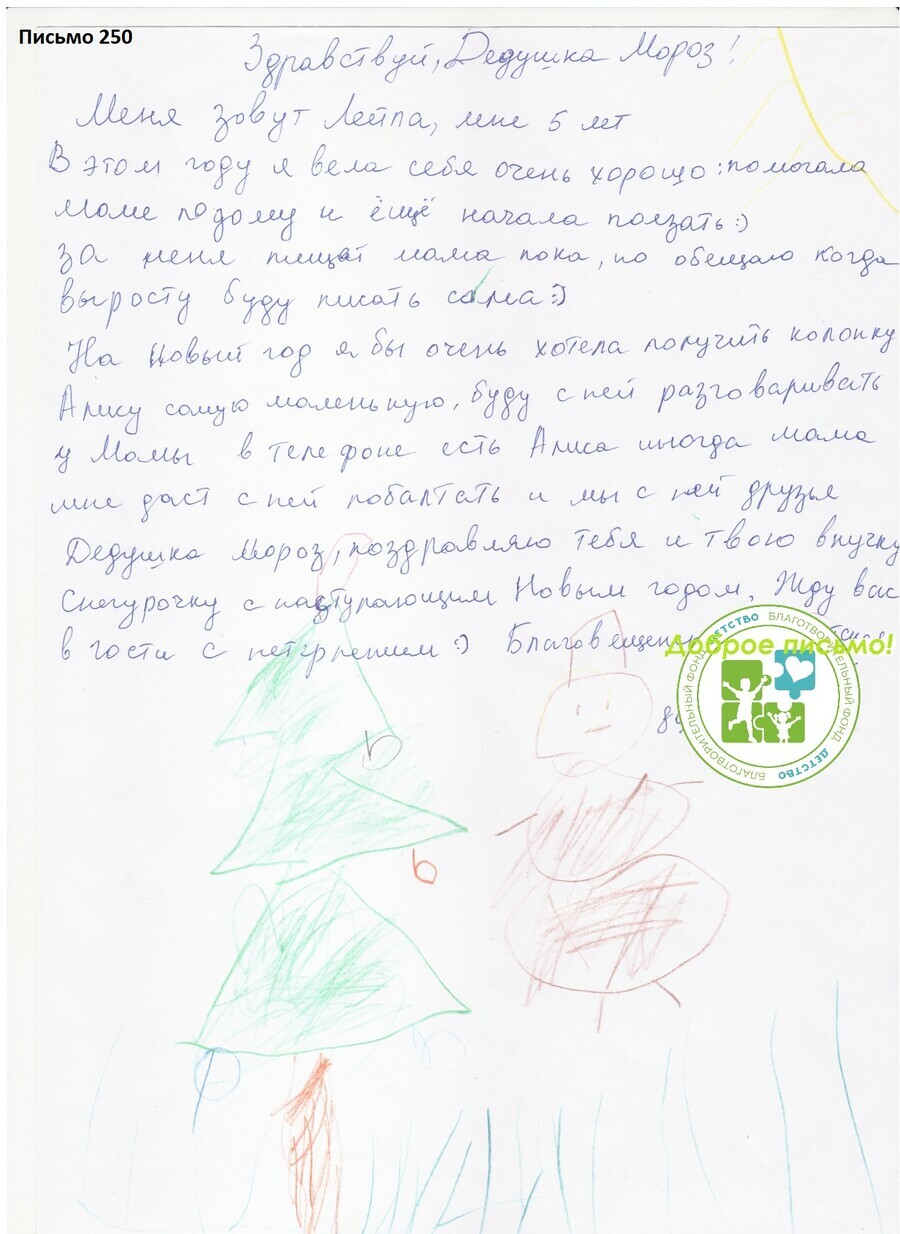 Письмо 250
Здравствуй, Дедушка Мороз!
Меня зовут Лейла, мне 5 лет
В этом году я вела себя очень хорошо: помогала
маме по дому и ещё начала ползать :)
За меня пишет мама пока, но обещаю когда
выросту буду писать сама :)
На Новый год я бы очень хотела получить колонку
Алису самую маленькую, буду с ней разговаривать
у Мамы в телефоне есть Алиса иногда мама
мне даст с ней поболтать и мы с ней друзья
Дедушка Мороз, поздравляю тебя и твою внучку
Снегурочку с наступающим Новым годом, Жду вас
в гости с нетерпением :)
Доброе письмо!
БЛАГОТВОРИТЕЛЬНЫЙ ФОНД ДЕТСТВО БЛАГОТВОРИТЕЛЬНЫЙ ФОНД ДЕТСТВО